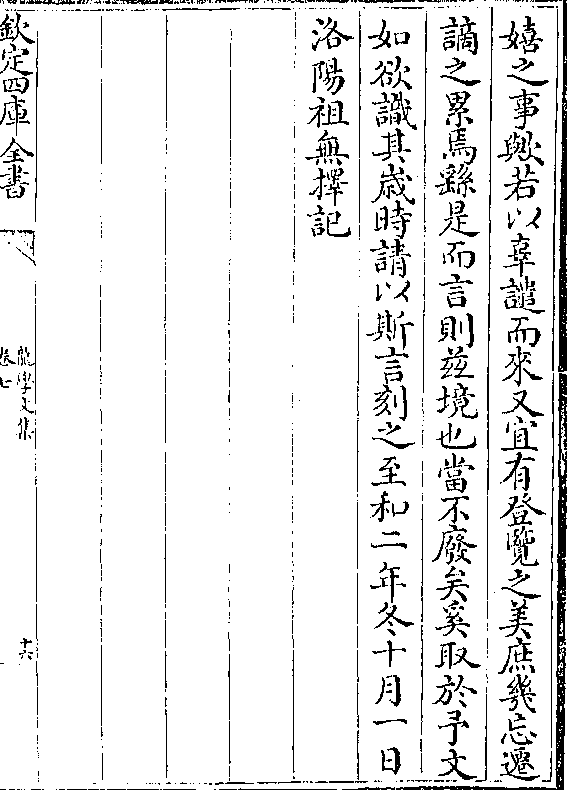 嬉之事歟若以辜譴而來又宜有登覽之美庶㡬忘遷
謫之累焉繇是而言則兹境也當不廢矣奚取於予文
如欲識其歳時請以斯言刻之至和二年冬十月一日
洛陽祖無擇記
欽定四庫全書
龍學文集
卷七
十六